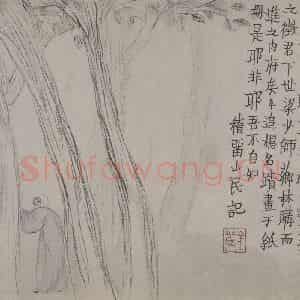 之徵君下世梁少師薌林購而
進之内府矣今追想名蹟畫于紙
是耶非耶吾不自知
稽留山民記
Shufawang.cn